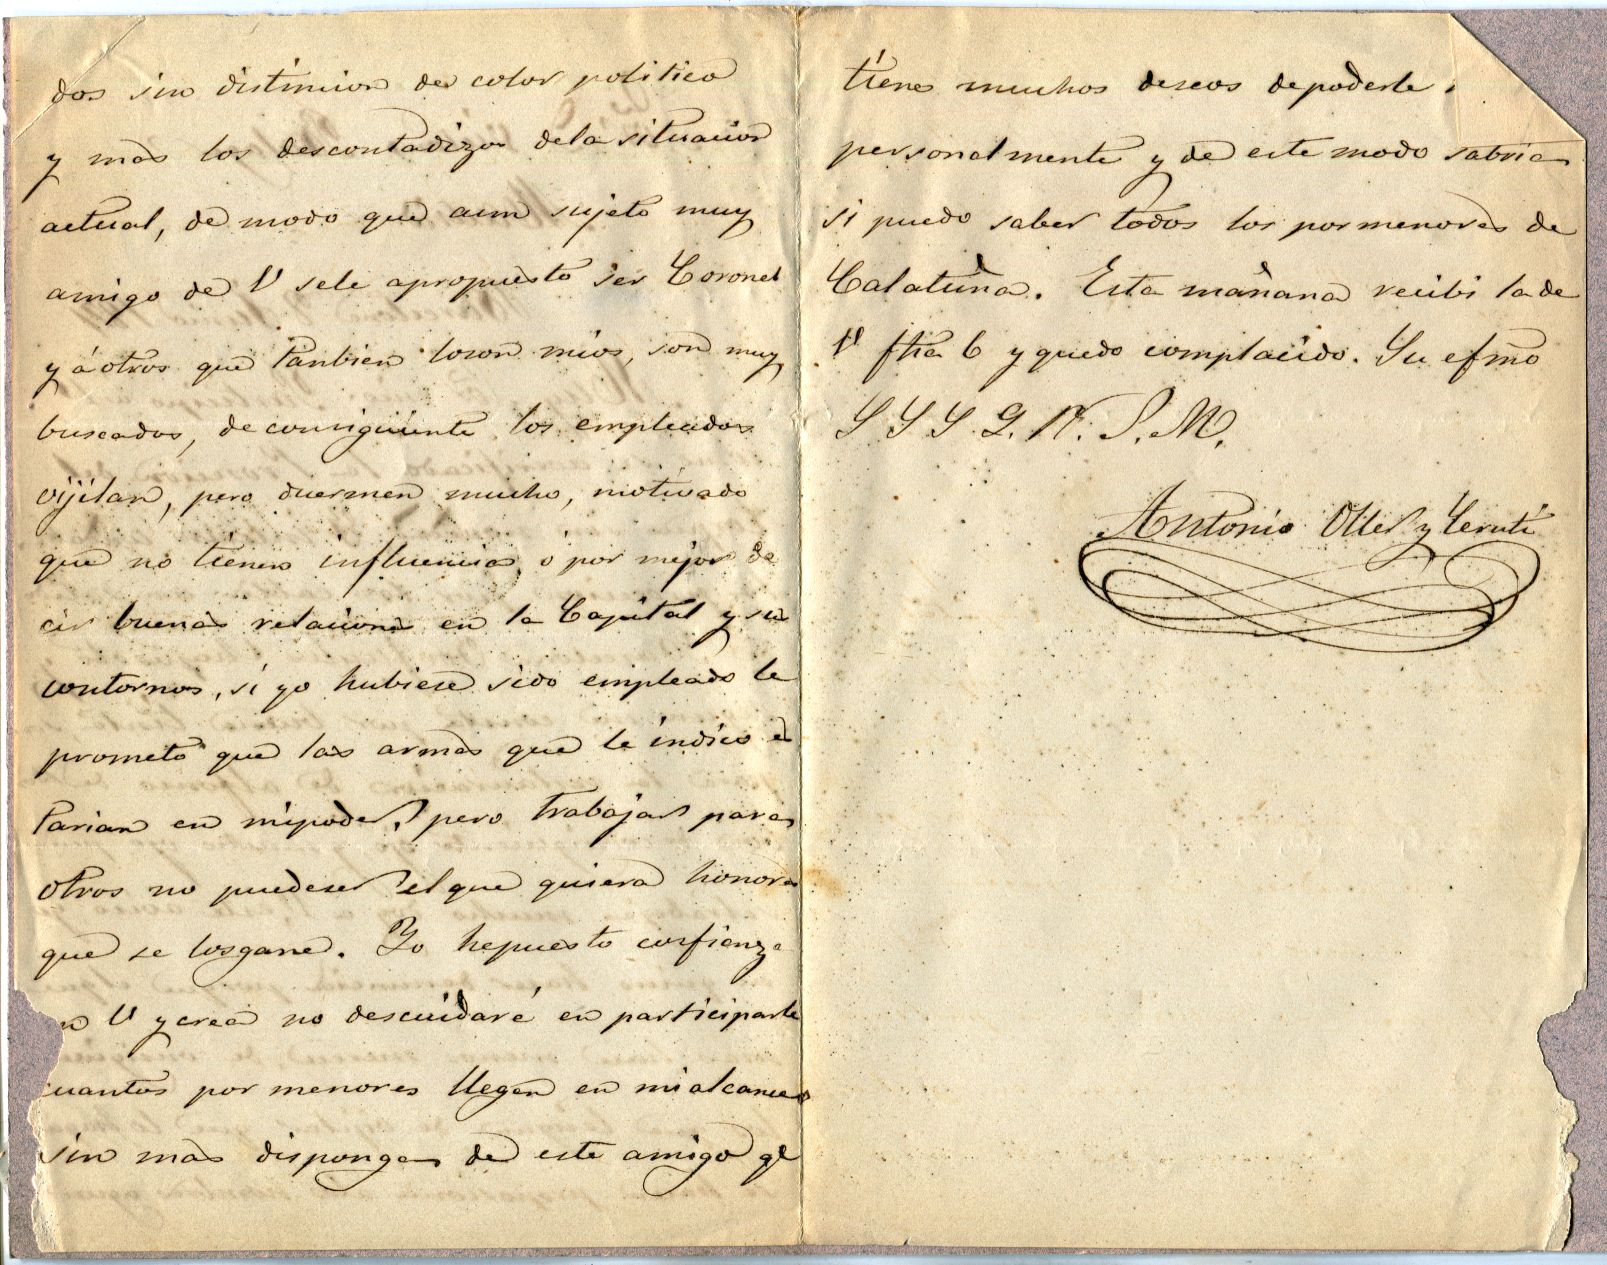 dos sin distincion de color politico
y mas los descontadizos dela situacion
actual, de modo que aun sujeto muy
amigo de V sele apropuesto ser Coronel
y á otros que tanbien loson mios, son muy
buscados, de consigüiente los empleados
vijilan, pero duermen mucho, motivado
que no tienen influencia, ó por mejor de
cir buenas relaciones en la Capital y sus
contornos, si yo hubiese sido empleado le
prometo que las armas que le indico es
tarian en mipoder, pero trabajar para
otros no puedeser el que quiera honores
que se losgane. Yo hepuesto confianza
en V y crea no descuidaré en participarle
cuantos por menores llegen en mialcance
sin mas disponga de este amigo qe
tiene muchos deseos depoderle
personalmente y de este modo sabria
si puedo saber todos los pormenores de
Cataluña. Esta mañana recibi la de
V fha 6 y quedo complacido. Su efmo
S S S Q. V. S. M.
Antonio Oller y Ceruti